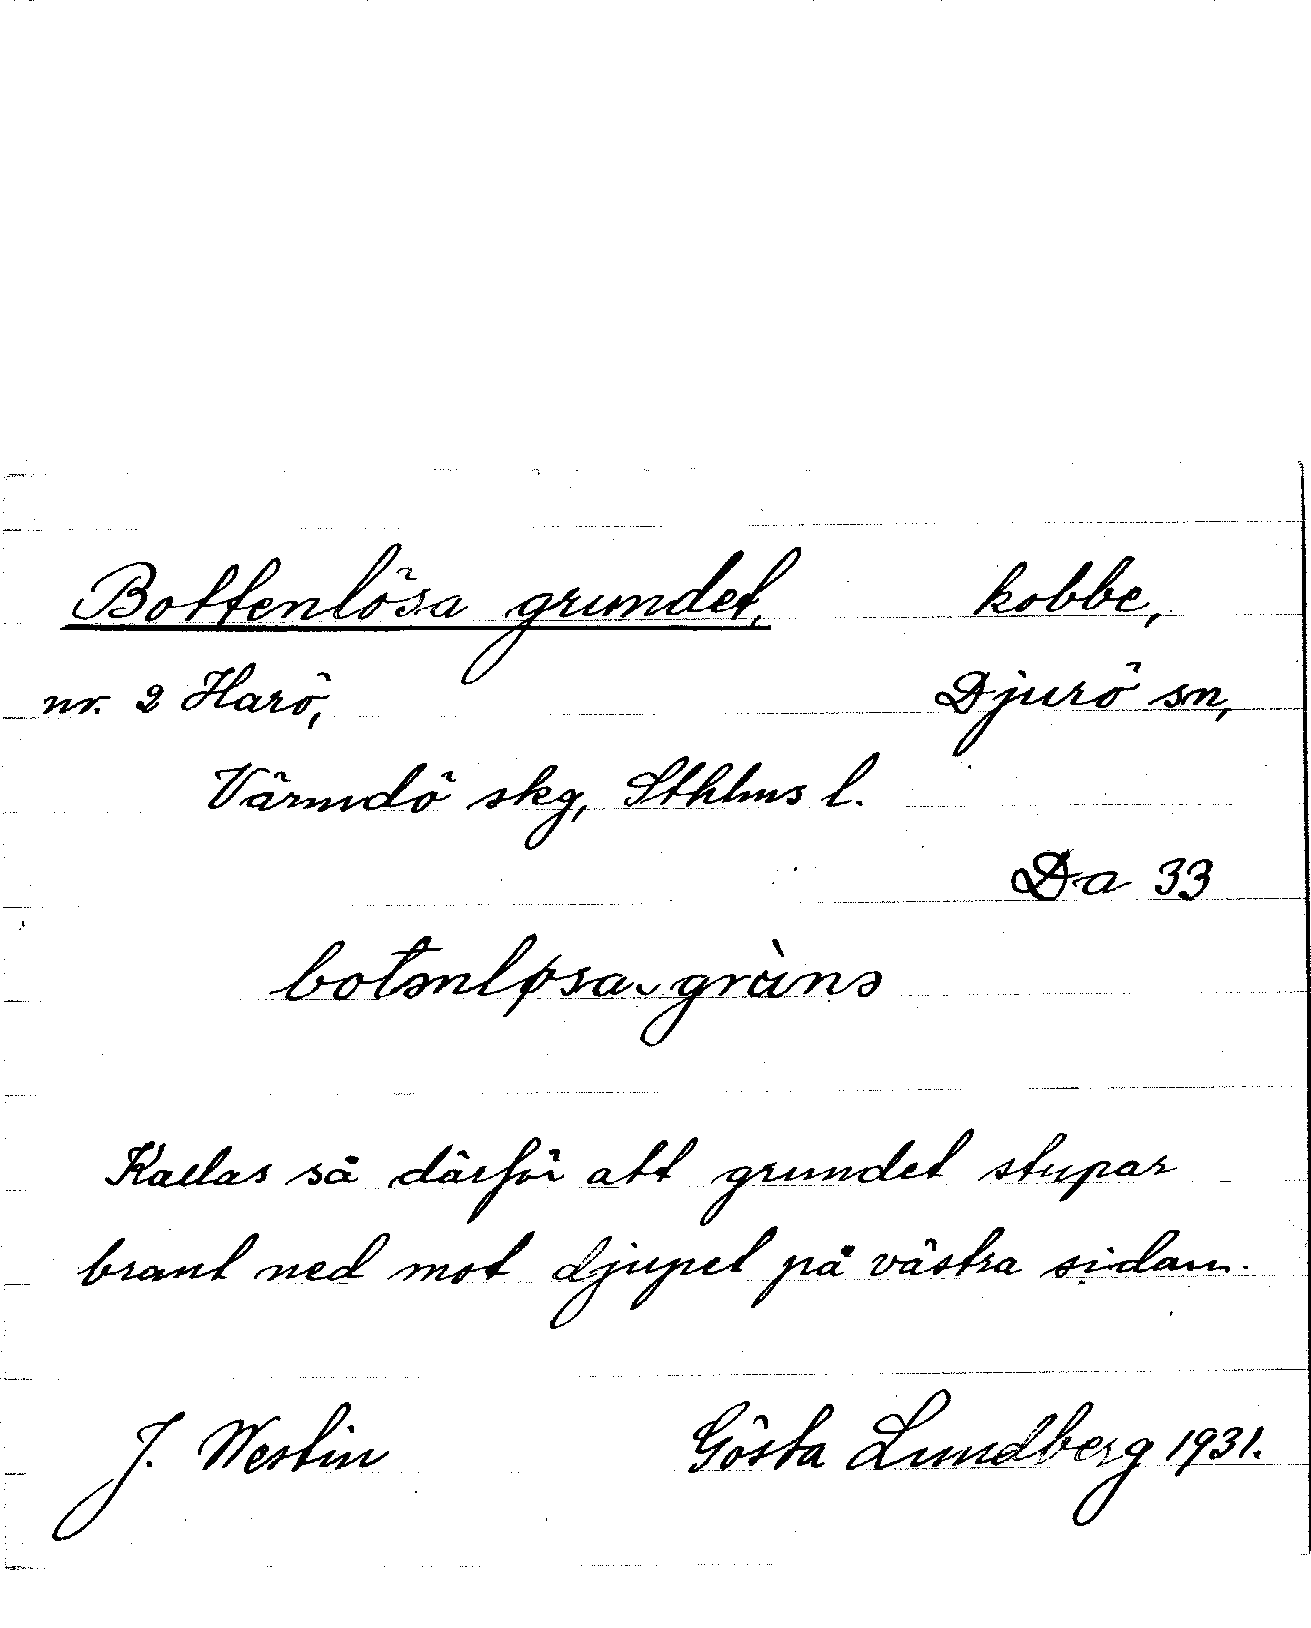 Bottenlösa grundet, kobbe,
nr. 2 Harö, Djurö sn,
Värmdö skg, Sthlms l.
Da 33
bot̄ənløsa grùnə
Kallas så därför att grundet stupar
brant ned mot djupet på västra sidan.
J. Westin Gösta Lundberg 1931.